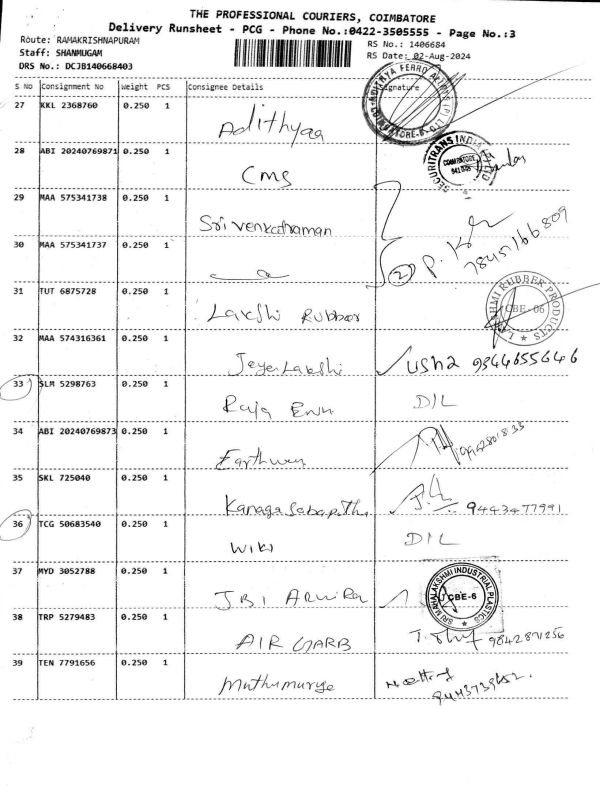 THE PROFESSIONAL COURIERS, COIMBATORE
Delivery Runsheet - PCG - Phone No.:0422-3505555 - Page No.:3
Route: RAMAKRISHNAPURAM
RS No.: 1406684
Staff: SHANMUGAM
RS Date: 02-Aug-2024
DRS No.: DCJB140668403
S No Consignment No Weight PCS Consignee Details Signature
27 KKL 2368760 0.250 1
Adithyaa
28 ABI 20240769871 0.250 1
CMS
SECURITRANS INDIA
COIMBATORE
29 MAA 575341738 0.250 1
Sri Venkatraman
30 MAA 575341737 0.250 1
2 P. 7845166809
31 TUT 6875728 0.250 1
Lakshi Rubber
LAKSHMI RUBBER PRODUCTS
CBE-06
32 MAA 574316361 0.250 1
JeyaLakshi usha 9344655646
33 SLM 5298763 0.250 1
Raja Enn D/L
34 ABI 20240769873 0.250 1
Earthway
35 SKL 725040 0.250 1
Kanagasabapathi 9443477991
36 TCG 50683540 0.250 1
Wiki D/L
37 MYD 3052788 0.250 1
JBI
SRI MAHALAKSHMI INDUSTRIAL PLASTICS
CBE-6
38 TRP 5279483 0.250 1
AIR GARB 9842871256
39 TEN 7791656 0.250 1
Muthumuruge